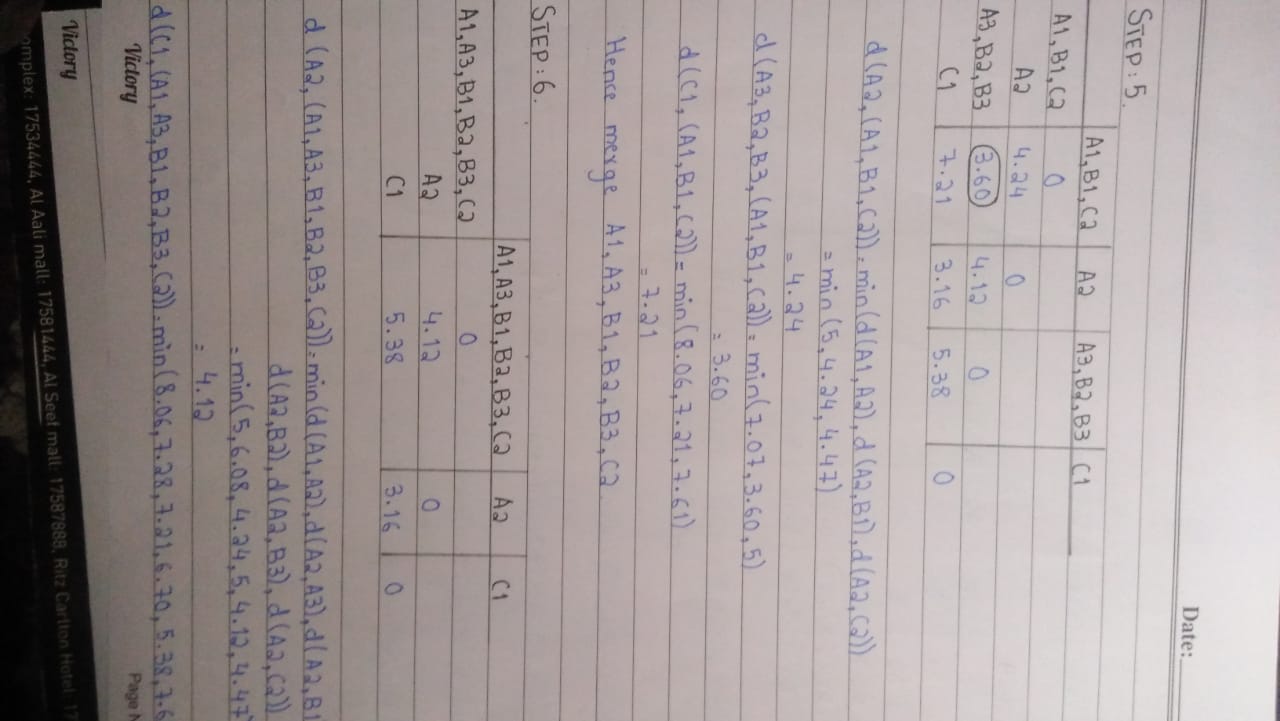 Date:
STEP:5.
A1,B1,C2 A2 A3,B2,B3 C1
A1,B1,C2 0
A2 4.24 0
A3,B2,B3 3.60 4.12 0
C1 7.21 3.16 5.38 0
d(A2,(A1,B1,C2)) = min(d(A1,A2),d(A2,B1),d(A2,C2))
= min(5,4.24,4.47)
= 4.24
d(A3,B2,B3,(A1,B1,C2)) = min(7.07,3.60,5)
= 3.60
d(C1,(A1,B1,C2)) = min(8.06,7.21,7.61)
= 7.21
Hence merge A1,A3,B1,B2,B3,C2
STEP:6.
A1,A3,B1,B2,B3,C2 A2 C1
A1,A3,B1,B2,B3,C2 0
A2 4.12 0
C1 5.38 3.16 0
d(A2,(A1,A3,B1,B2,B3,C2)) = min(d(A1,A2),d(A2,A3),d(A2,B1
d(A2,B2),d(A2,B3),d(A2,C2))
= min(5,6.08,4.24,5,4.12,4.47
= 4.12
d(C1,(A1,A3,B1,B2,B3,C2)) = min(8.06,7.28,7.21,6.70,5.38,7.6
Victory Page N
Victory
omplex: 17534444, Al Aali mall: 17581444, Al Seef mall: 17587888, Ritz Carlton Hotel: 17